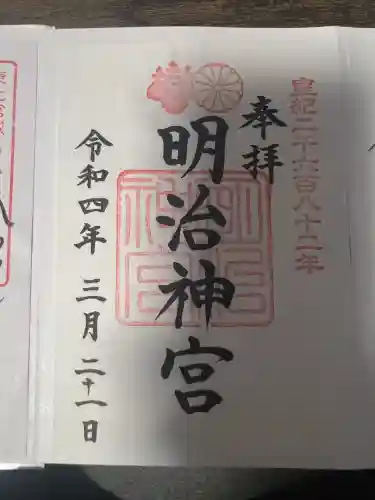 皇紀二千六百八十二年
奉拝
明治神宮
令和四年 三月 二十一日